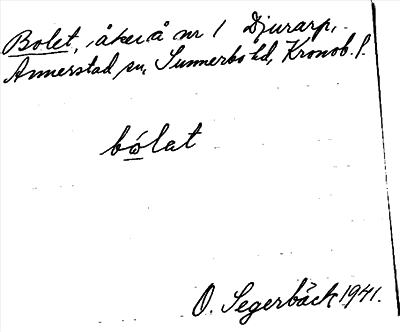 Bolet, åker å nr 1 Djurarp,
Annerstad sn, Sunnerbo hd, Kronob. l.
bólat
O. Segerbäck 1941.